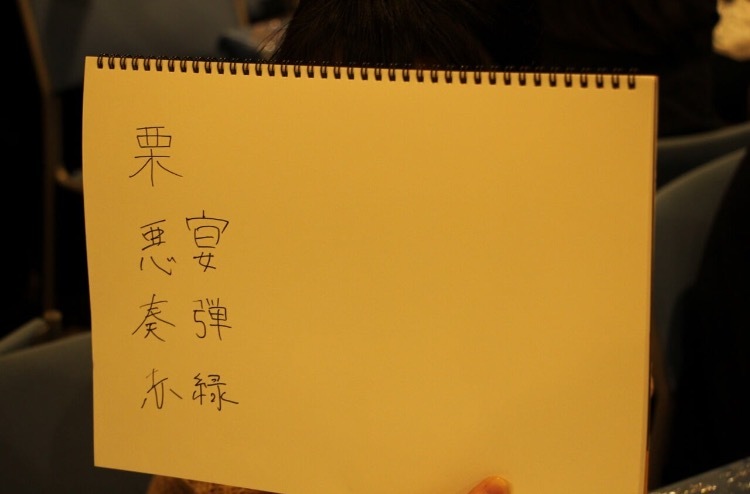 栗
悪宴
奏弾
赤緑